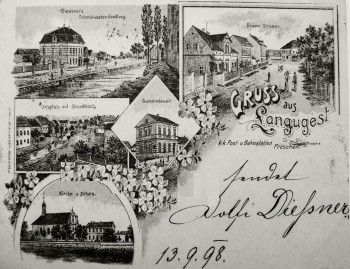 Diessner's
Colonialwaaren Handlung.
Brüxer Strasse.
Ortsplatz mit
Gemeindeamt
GRUSS aus
Langugest
k.k. Post u. Bahnstation
Preschen
Kirche u. Schule.
sendet
Dolfi Dießner
13.9.98.